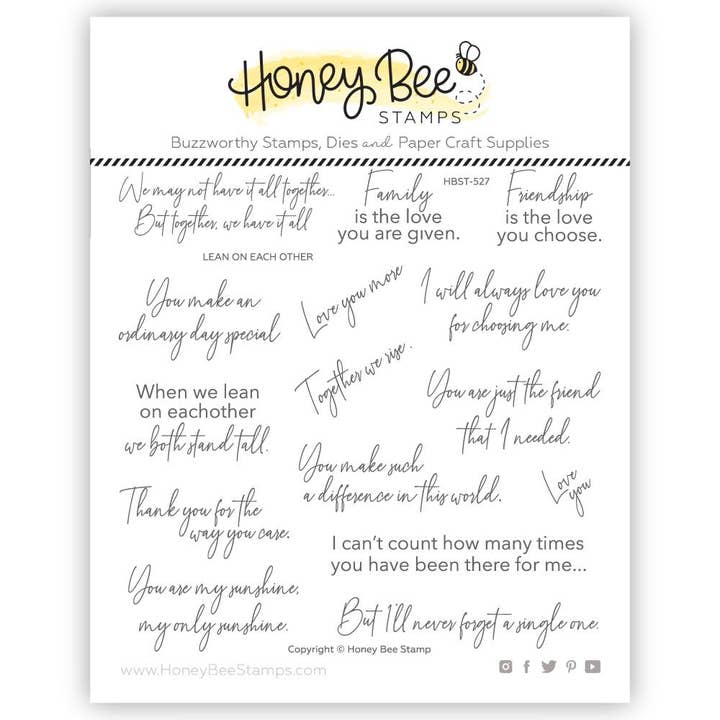 Honey Bee
STAMPS
Buzzworthy Stamps, Dies and Paper Craft Supplies
HBST-527
We may not have it all together...
But together, we have it all
Family
is the love
you are given.
Friendship
is the love
you choose.
LEAN ON EACH OTHER
You make an
ordinary day special
Love you more
I will always love you
for choosing me.
Together we rise.
When we lean
on eachother
we both stand tall.
You are just the friend
that I needed.
You make such
a difference in this world.
Love
you
Thank you for the
way you care.
I can't count how many times
you have been there for me...
You are my sunshine,
my only sunshine.
But I'll never forget a single one.
Copyright © Honey Bee Stamp
www.HoneyBeeStamps.com